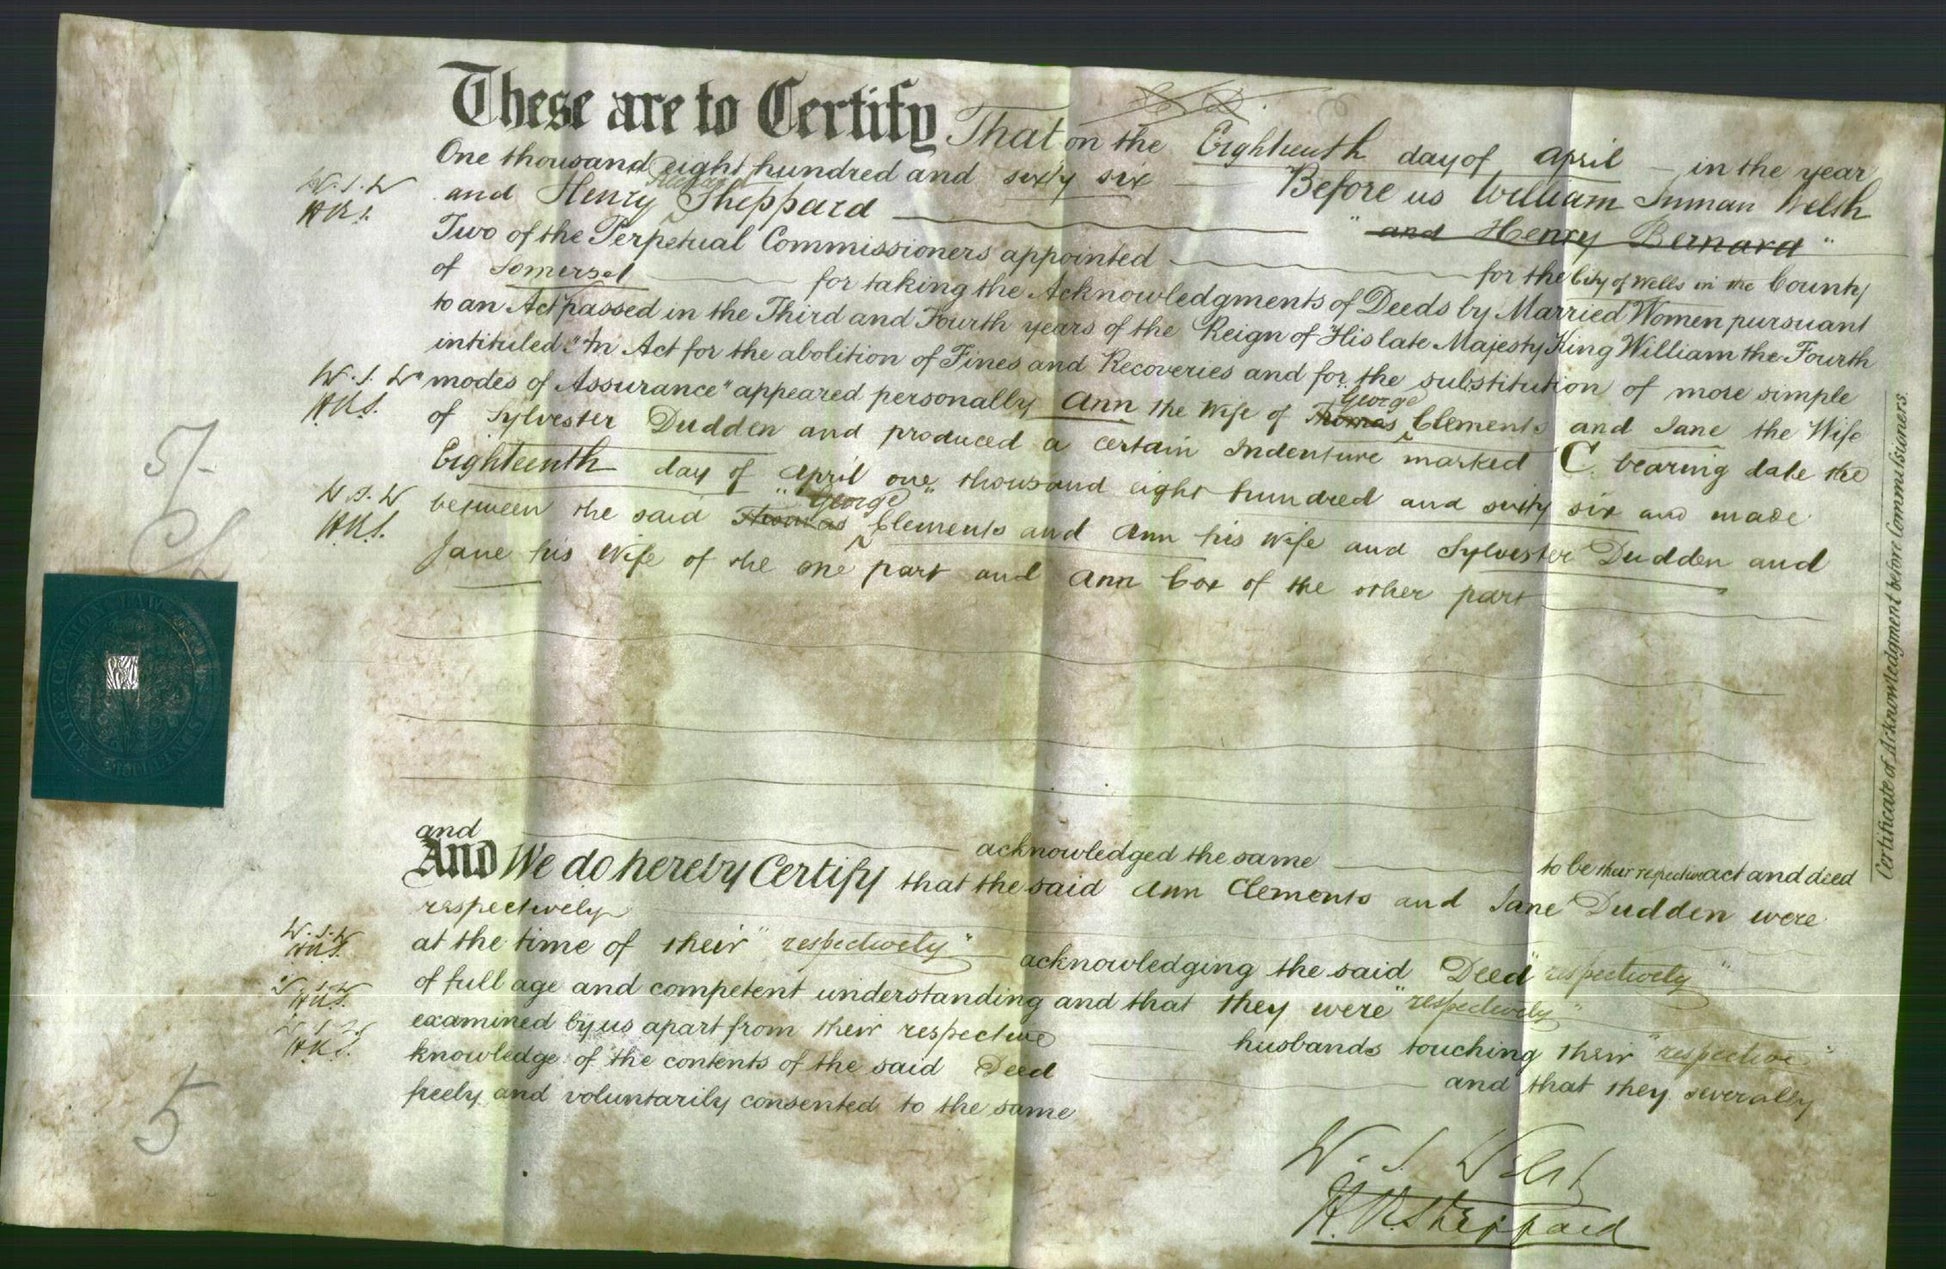 These are to Certify That on the Eighteenth day of April in the year
One thousand eight hundred and sixty six Before us William Inman Welsh
W. I. W
H R S.
and Henry Richard Sheppard "and Henry Bernard"
Two of the Perpetual Commissioners appointed for the City of Wells in the County
of Somerset for taking the Acknowledgments of Deeds by Married Women pursuant
to an Act passed in the Third and Fourth years of the Reign of His late Majesty King William the Fourth
intituled "An Act for the abolition of Fines and Recoveries and for the substitution of more simple
W. I. W
H.R.S.
modes of Assurance" appeared personally Ann the Wife of Thomas "George" Clements and Jane the Wife
of Sylvester Dudden and produced a certain Indenture marked C. bearing date the
Eighteenth day of April one thousand eight hundred and sixty six and made
W. I. W
H.R.S.
between the said Thomas "George" Clements and Ann his Wife and Sylvester Dudden and
Jane his Wife of the one part and Ann Cox of the other part
5/-
COMMON LAW
FIVE SHILLINGS
and acknowledged the same to be their respective act and deed
respectively
And We do hereby Certify that the said Ann Clements and Jane Dudden were
W. I. W
H.R.S.
at the time of their "respectively" acknowledging the said Deed "respectively"
W. I. W
H.R.S.
of full age and competent understanding and that they were "respectively"
W. I. W
H.R.S.
examined by us apart from their respective husbands touching their "respective"
knowledge of the contents of the said Deed and that they severally
freely and voluntarily consented to the same
5
W. I. Welsh
H. R. Sheppard
Certificate of Acknowledgment before Commissioners.